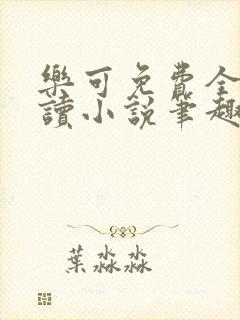 樂可免費全
讀小說筆趣
葉淼淼